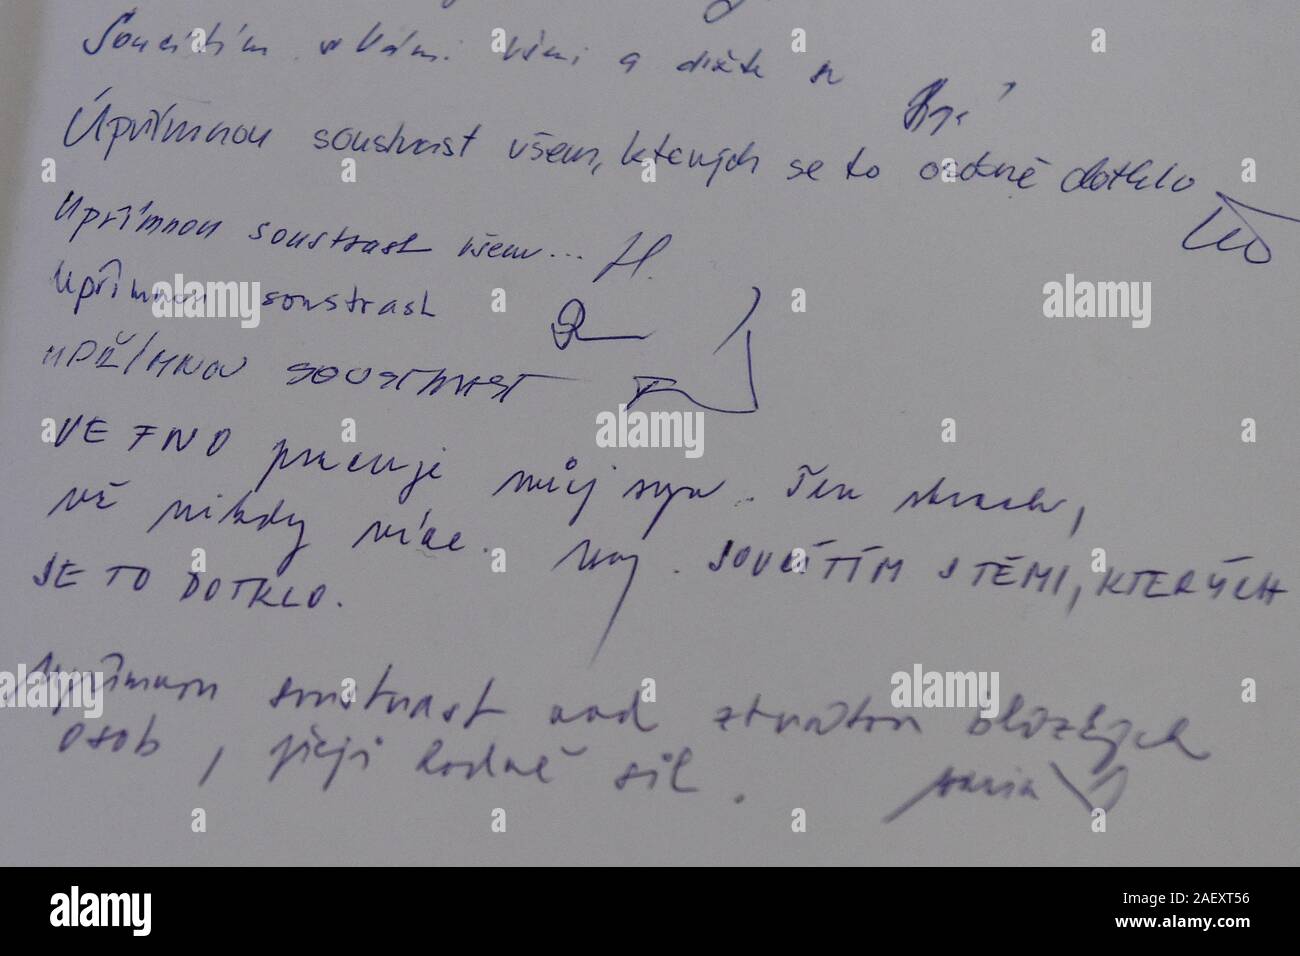 Soucítím s Vámi všemi a držte se
Úpřímnou soustrast všem, kterých se to osobně dotklo
Upřímnou soustrast všem... H.
Upřímnou soustrast
UPŘÍMNOU SOUSTRAST
VE FNO pracuje můj syn. Ten strach,
už nikdy více. SOUCÍTÍM S TĚMI, KTERÝCH
SE TO DOTKLO.
Upřímnou soustrast nad ztrátou blízkých
osob, přeji hodně sil.
alamy
alamy
alamy
alamy
alamy
alamy
Image ID: 2AEXT56
www.alamy.com